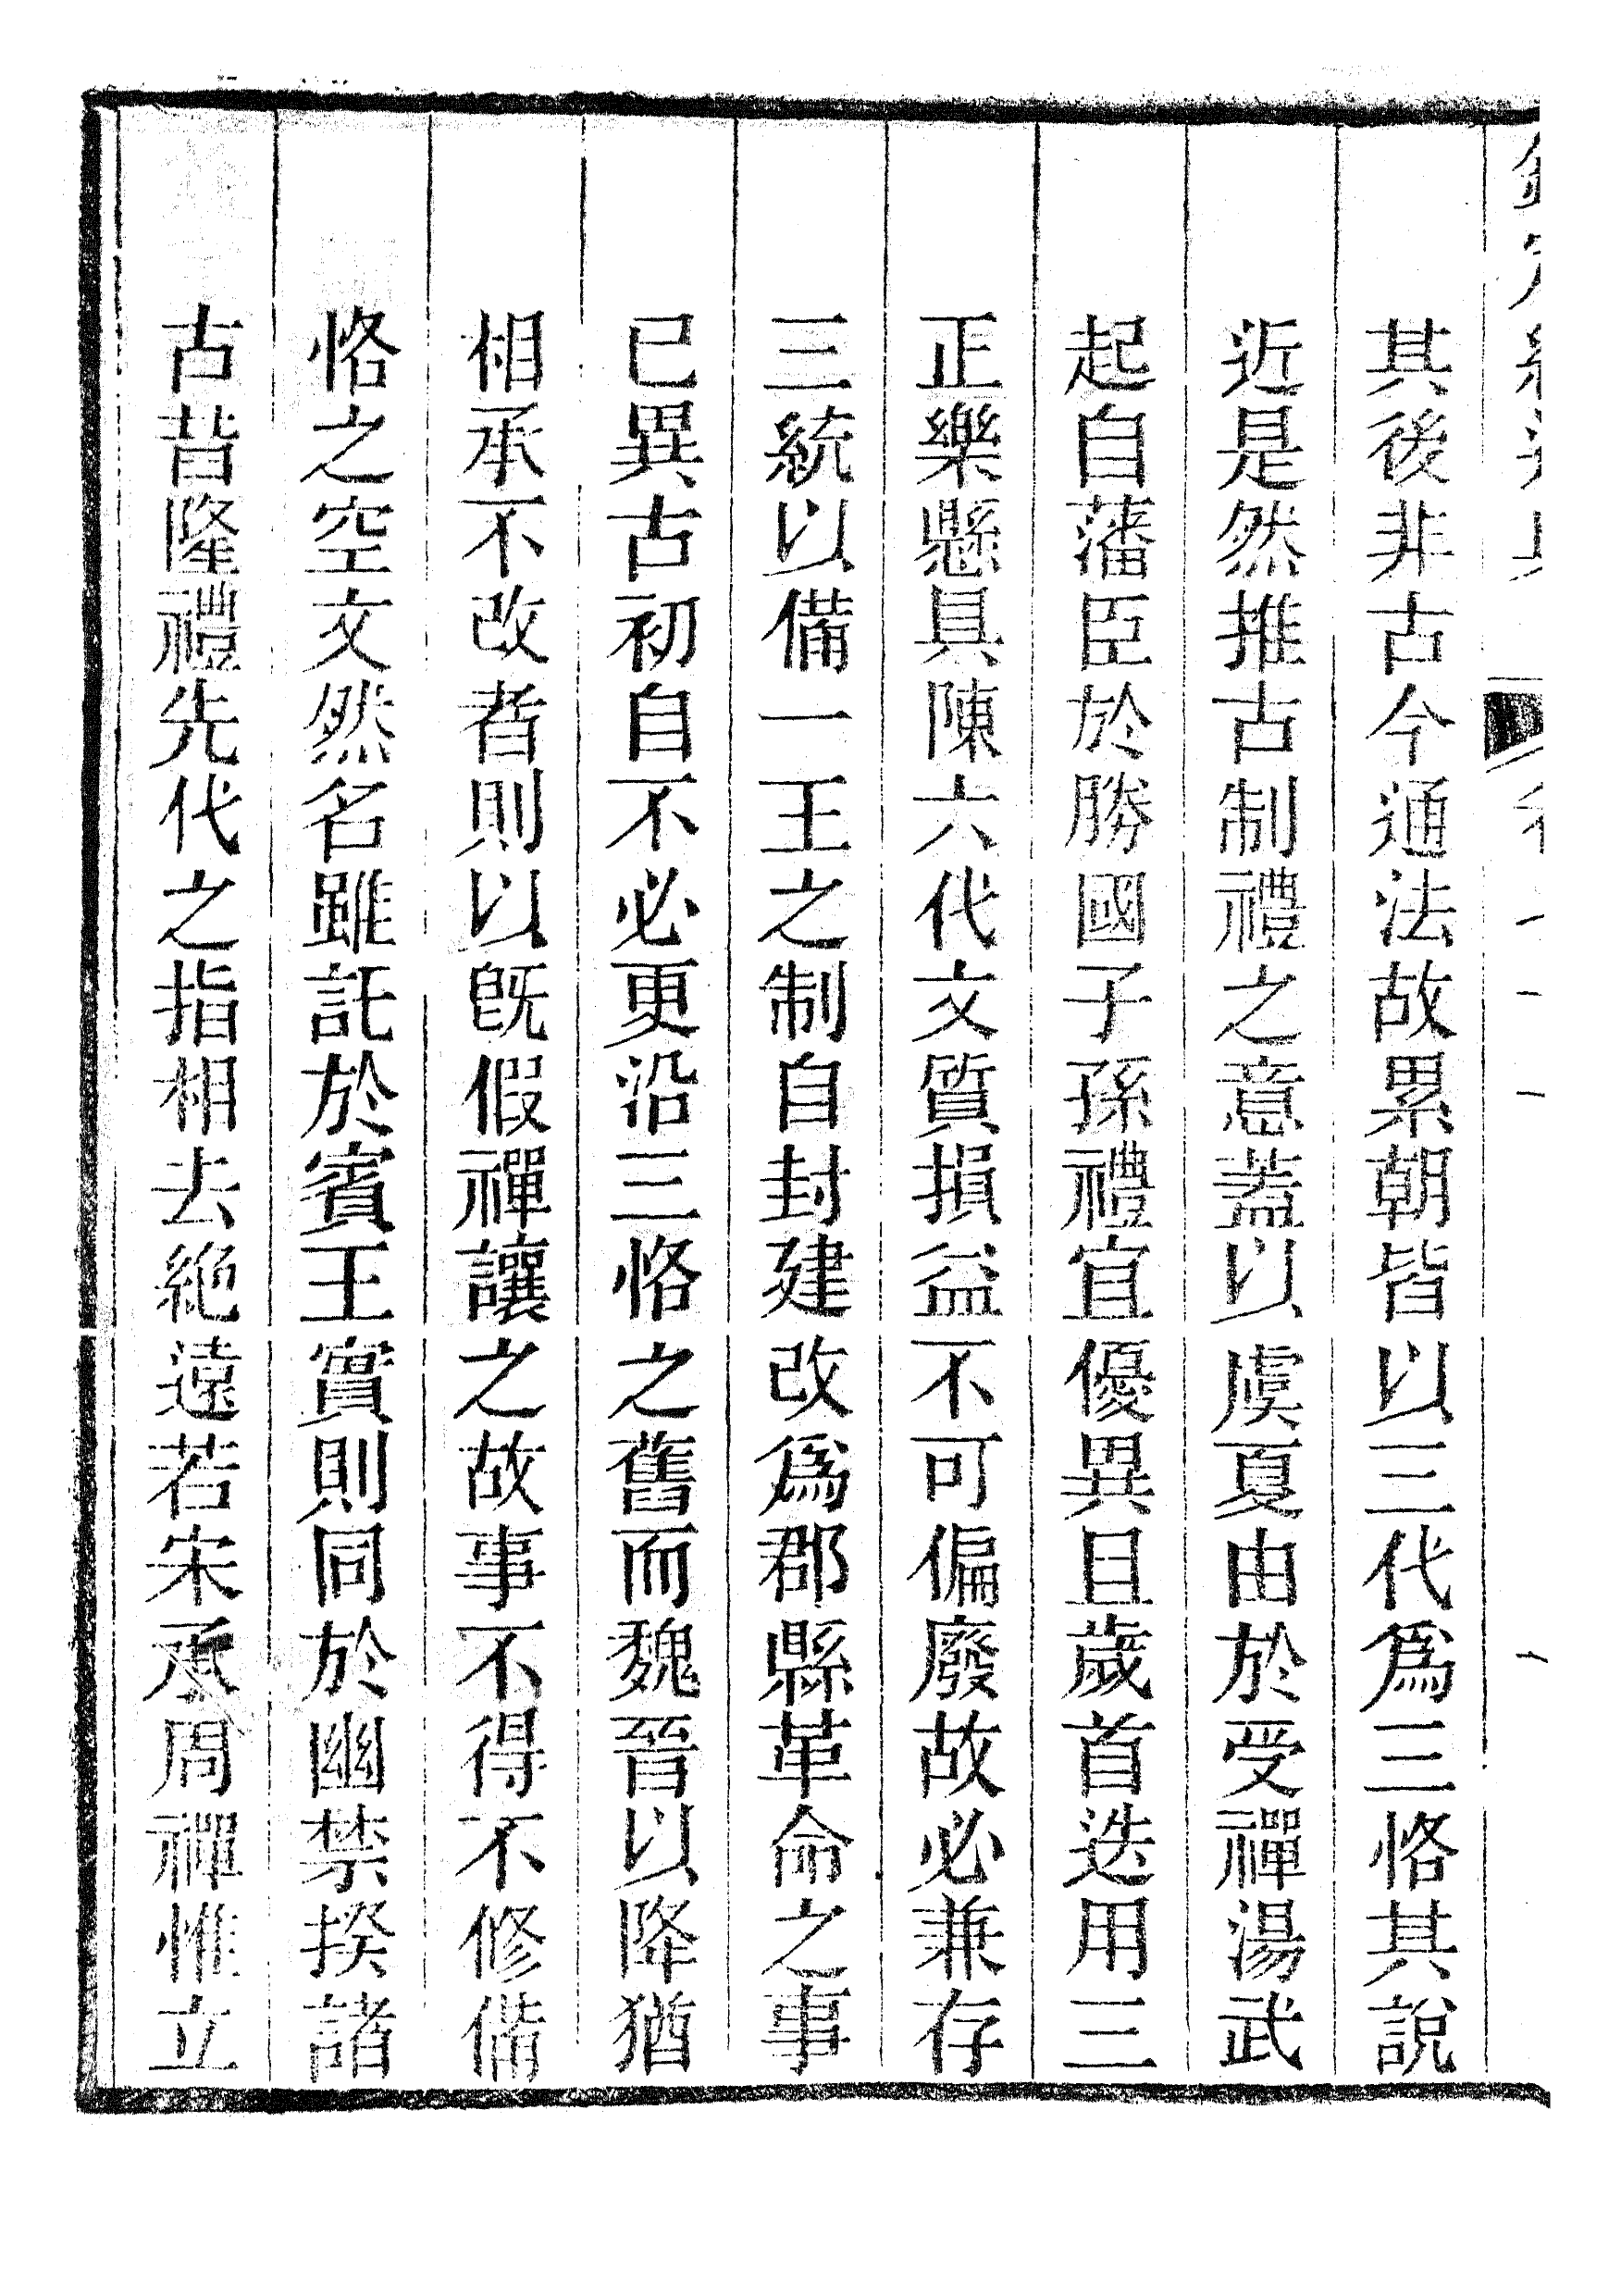 其後非古今通法故累朝皆以三代爲三恪其說
近是然推古制禮之意蓋以虞夏由於受禪湯武
起自藩臣於勝國子孫禮宜優異且歲首迭用三
正樂懸具陳六代文質損益不可偏廢故必兼存
三統以備一王之制自封建改爲郡縣革命之事
已異古初自不必更沿三恪之舊而魏晉以降猶
相承不改者則以旣假禪讓之故事不得不修備
恪之空文然名雖託於賓王實則同於幽禁揆諸
古昔隆禮先代之指相去絶遠若宋承周禪惟立